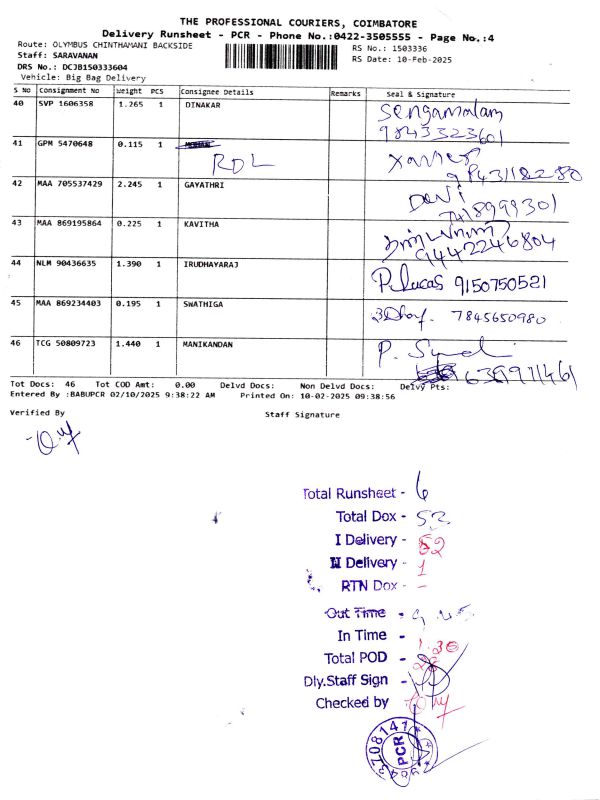 THE PROFESSIONAL COURIERS, COIMBATORE
Delivery Runsheet - PCR - Phone No.:0422-3505555 - Page No.:4
Route: OLYMBUS CHINTHAMANI BACKSIDE
RS No.: 1503336
Staff: SARAVANAN
RS Date: 10-Feb-2025
DRS No.: DCJB150333604
Vehicle: Big Bag Delivery
S No Consignment No Weight PCS Consignee Details Remarks Seal & Signature
40 SVP 1606358 1.265 1 DINAKAR Sengamalam
9843323601
41 GPM 5470648 0.115 1 Xavier
RDL
42 MAA 705537429 2.245 1 GAYATHRI Devi
7418999301
43 MAA 869195864 0.225 1 KAVITHA
9442246804
44 NLM 90436635 1.390 1 IRUDHAYARAJ P. Lucas 9150750521
45 MAA 869234403 0.195 1 SWATHIGA 7845650980
46 TCG 50809723 1.440 1 MANIKANDAN
Tot Docs: 46 Tot COD Amt: 0.00 Delvd Docs: Non Delvd Docs: Delvy Pts:
Entered By :BABUPCR 02/10/2025 9:38:22 AM Printed On: 10-02-2025 09:38:56
Verified By Staff Signature
Total Runsheet - 6
Total Dox - 52
I Delivery - 52
II Delivery - 1
RTN Dox - -
Out Time -
In Time - 1.30
Total POD -
Dly.Staff Sign -
Checked by
PCR